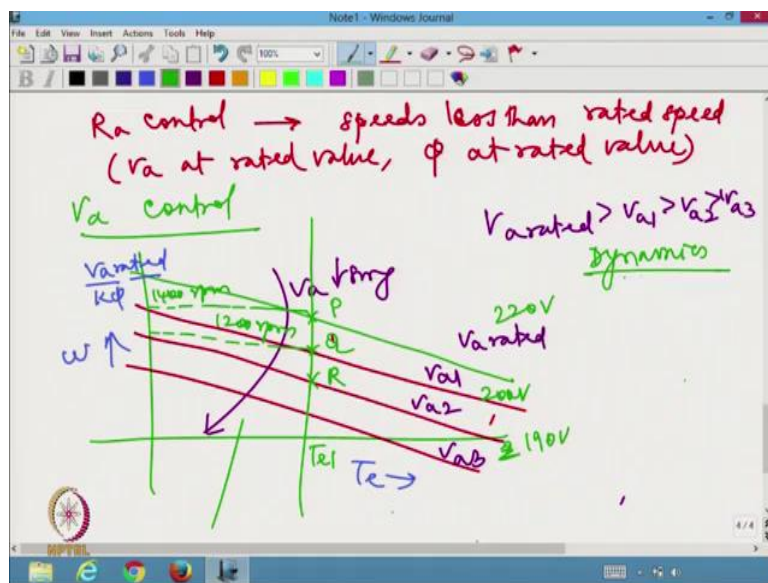 Note1 - Windows Journal
File Edit View Insert Actions Tools Help
100%
B I
Ra control → speeds less than rated speed
(Va at rated value, φ at rated value)
Va control
Va rated > Va1 > Va2 > Va3
Dynamics
Va rated
Kφ
1400 rpm
Va ↓sing
P
220V
Va rated
1200 rpm
Q
ω ↑
R
Va1
200V
Va2
190V
Va3
Te1
Te →
4/4
NPTEL